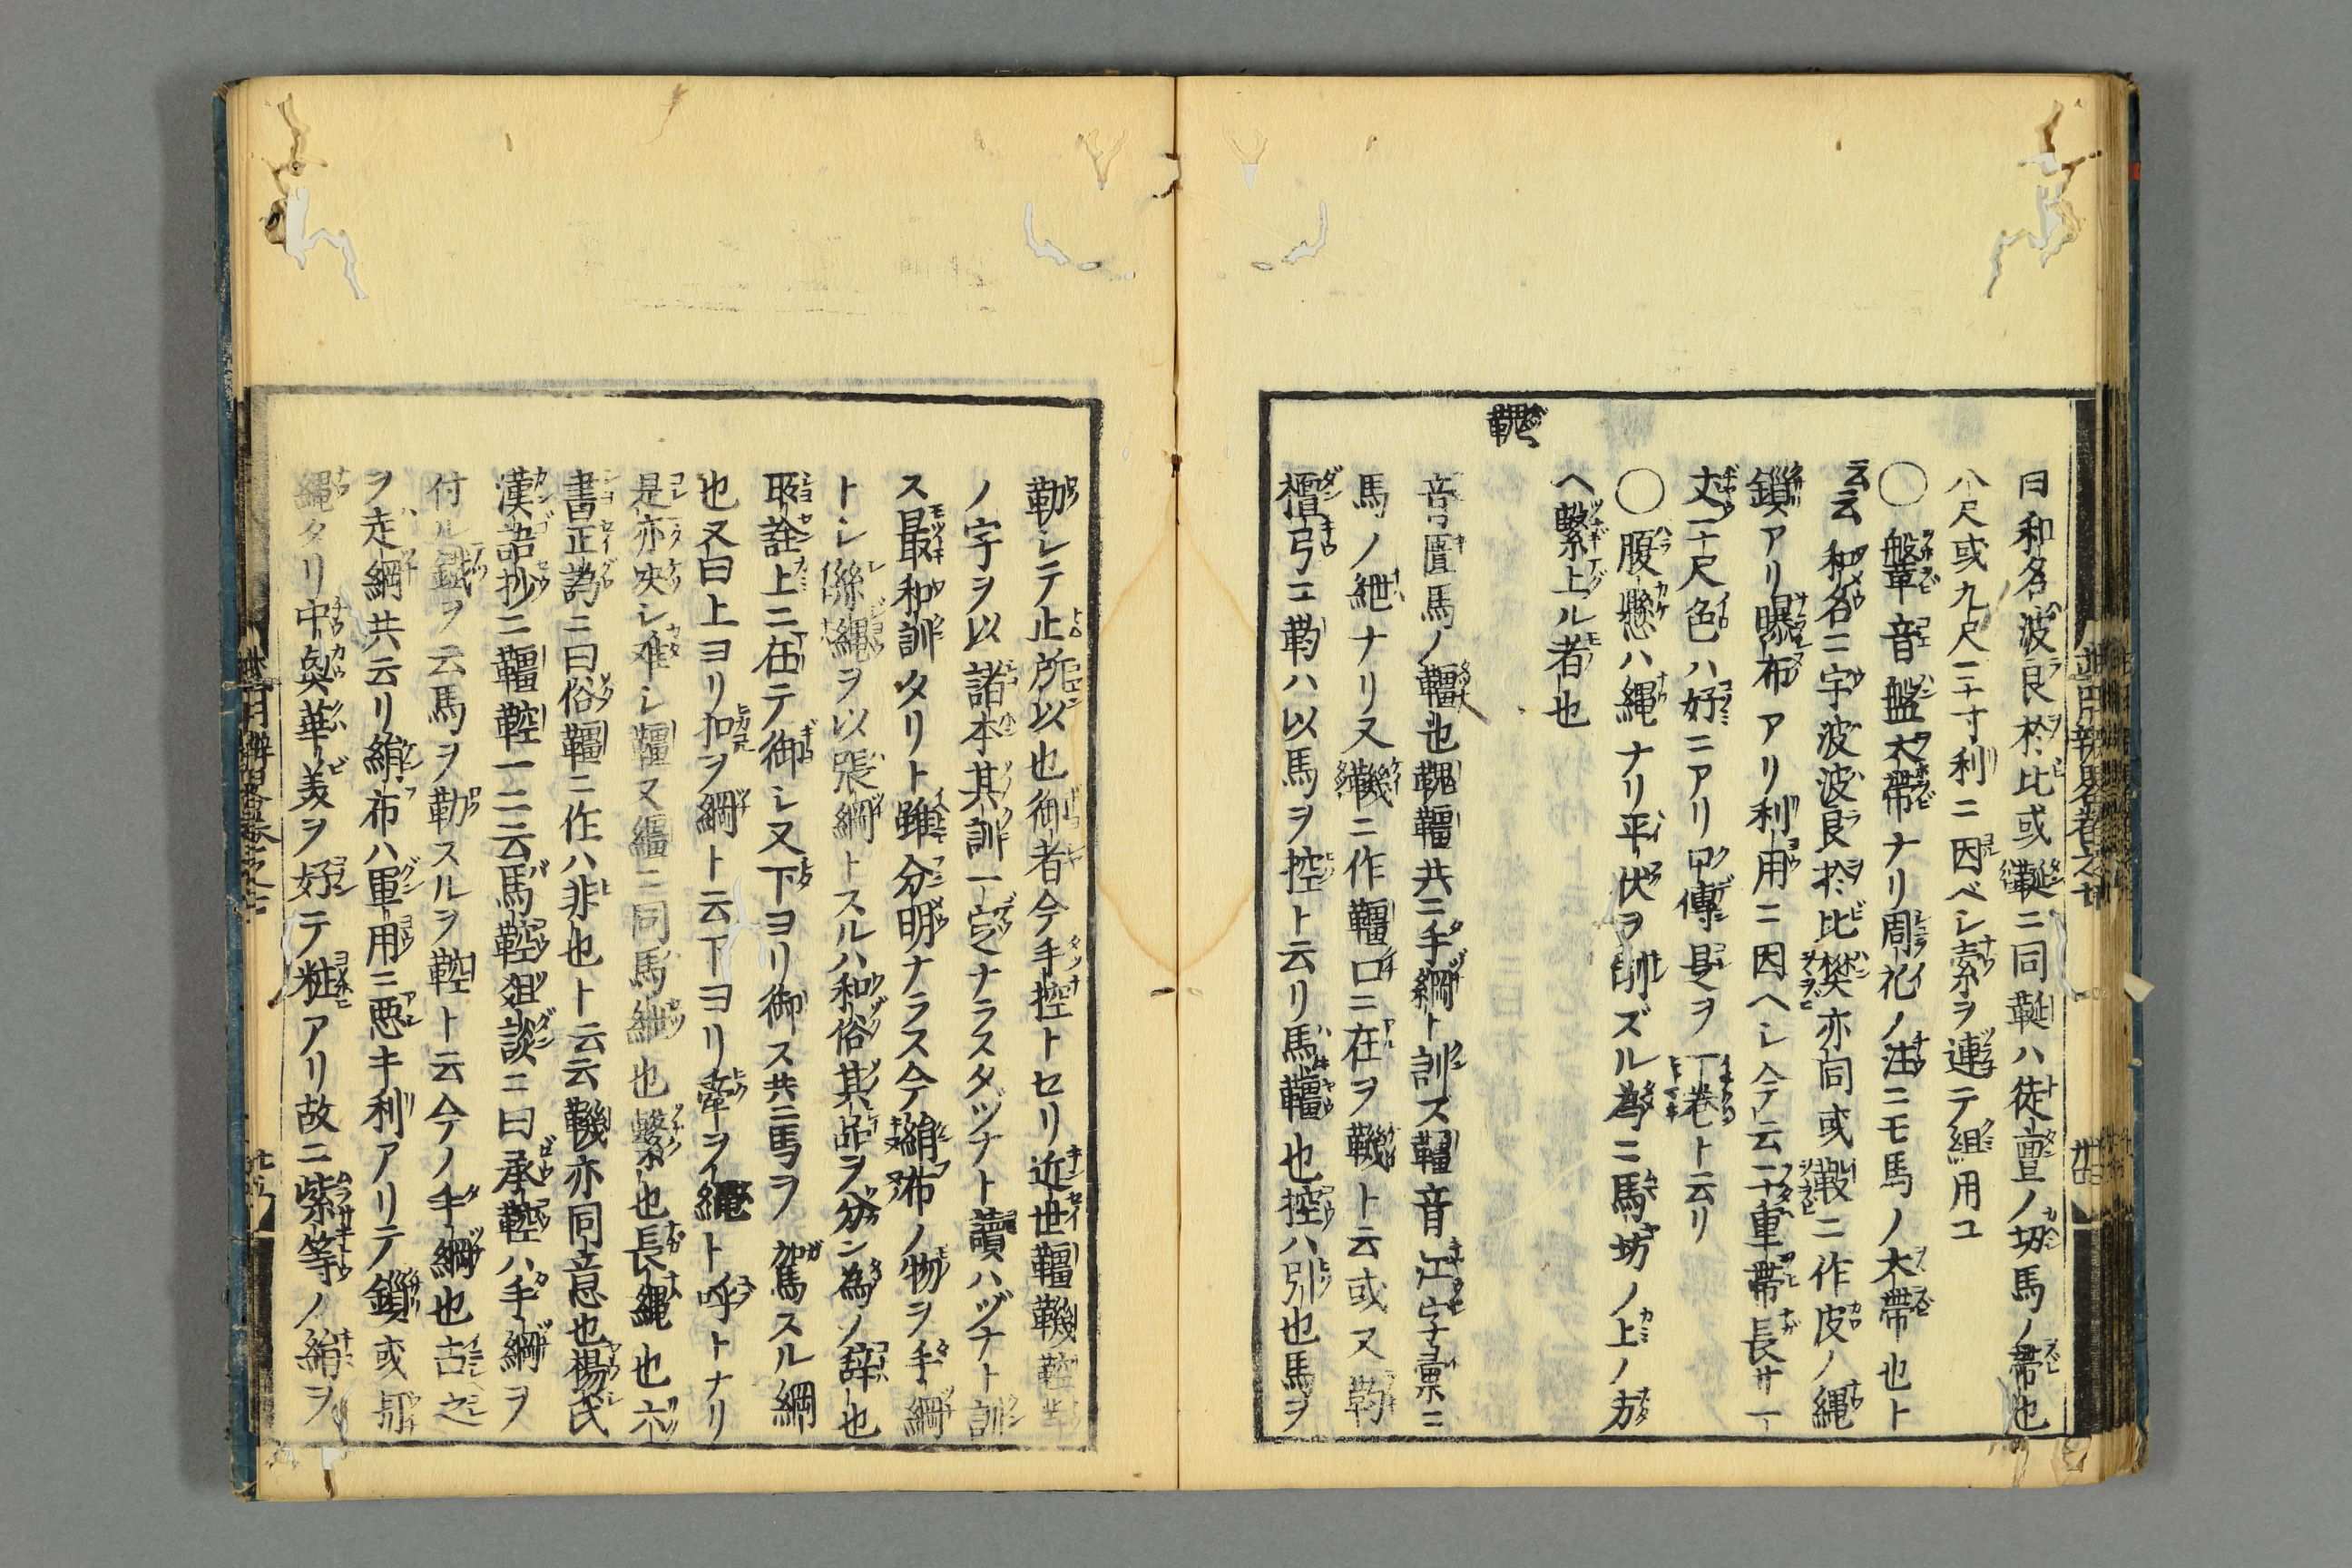 曰和名波良於比或𦅻ニ同鞓ハ徒亶ノ切馬ノ帯也
八尺或九尺二寸利ニ因ベシ索ヲ連テ組用ユ
〇鞶音盤大帯ナリ周礼ノ注ニモ馬ノ大帯也ト
云云和名ニ宇波波良於比樊亦同或鞶ニ作皮ノ縄
鎖アリ曝布アリ利用ニ因ヘシ今云二重帯長サ一
丈二尺色ハ好ニアリ口傳是ヲ一巻ト云リ
〇腹懸ハ縄ナリ平伏ヲ制ズル為ニ馬坊ノ上ノ方
ヘ繋上ル者也
音匡馬ノ韁也韁共ニ手綱ト訓ス韁音江字彙ニ
馬ノ紲ナリ又鞿ニ作韁口ニ在ヲ鞿ト云或又靮
檀弓ニ靮ハ以馬ヲ控ト云リ馬韁也控ハ引也馬ヲ
勒シテ止所以也御者今手控トセリ近世韁鞿鞚
ノ字ヲ以諸本其訓一定ナラスタヅナト讀ハヅナト訓
ス最和訓タリト雖分明ナラス今絹布ノ物ヲ手綱
トシ縄ヲ以張綱トスルハ和俗其品ヲ分ン為ノ辞也
所詮上ニ在テ御シ又下ヨリ御ス共ニ馬ヲ駕スル綱
也又曰上ヨリ扣ヲ綱ト云下ヨリ牽ヲ縄ト呼トナリ
是亦决シ难シ韁又繮ニ同馬紲也繋也長縄也六
書正譌ニ曰俗韁ニ作ハ非也ト云云鞿亦同意也楊氏
漢語抄ニ韁鞚一ニ云馬鞚俎談ニ曰承鞚ハ手綱ヲ
付ル鐶ヲ云馬ヲ勒スルヲ鞚ト云今ノ手綱也古之
ヲ走綱共云リ絹布ハ軍用ニ悪キ利アリテ鎖或
縄タリ中奥華美ヲ好テ粧アリ故ニ紫等ノ絹ヲ